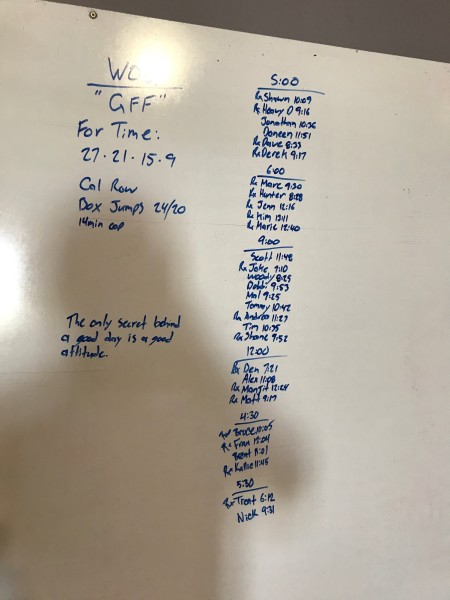 WOD
"GFF"
For Time:
27-21-15-9
Cal Row
Box Jumps 24/20
14min cap
The only secret behind
a good day is a good
attitude.
5:00
Rx Shawn 10:09
Rx Heavy D 9:16
Jonathan 10:36
Doneen 11:51
Rx Dave 8:33
Rx Derek 9:17
6:00
Rx Marc 9:30
Rx Hunter 8:28
Rx Jenn 12:16
Rx Kim 13:11
Rx Marie 12:40
9:00
Scott 11:48
Rx Jake 7:10
Woody 8:25
Debbi 9:53
Mal 9:25
Tommy 10:42
Rx Andrea 11:27
Tim 10:35
Rx Shane 9:52
12:00
Rx Den 7:21
Alex 11:08
Rx Manjit 12:24
Rx Matt 9:17
4:30
Bruce 10:05
Rx Fran 12:04
Brent
Rx Katie 11:45
5:30
Rx Trent 6:12
Nick 9:31